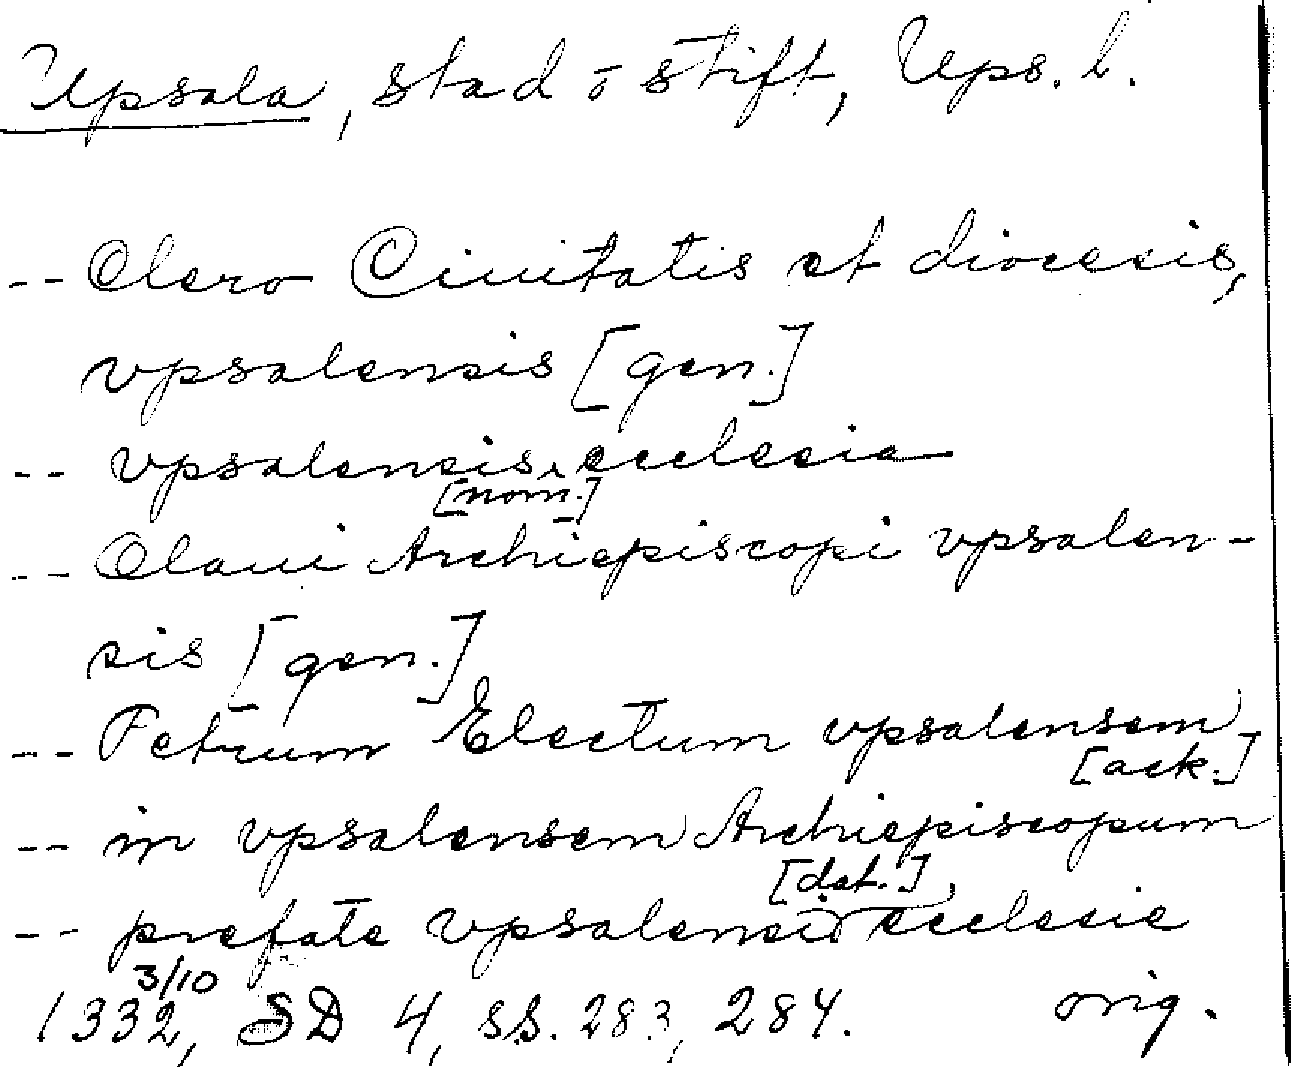 Upsala, stad o stift, Ups. l.
-- Clero Ciuitatis et diocesis,
vpsalensis [gen.]
-- vpsalensis ecclesia
[nom.]
-- Olaui Archiepiscopi vpsalen-
sis [gen.]
-- Petrum Electum vpsalensem
[ack.]
-- in vpsalensem Archiepiscopum
[dat.]
-- prefate vpsalensi ecclesie
3/10
1332, SD 4, ss. 283, 284. orig.